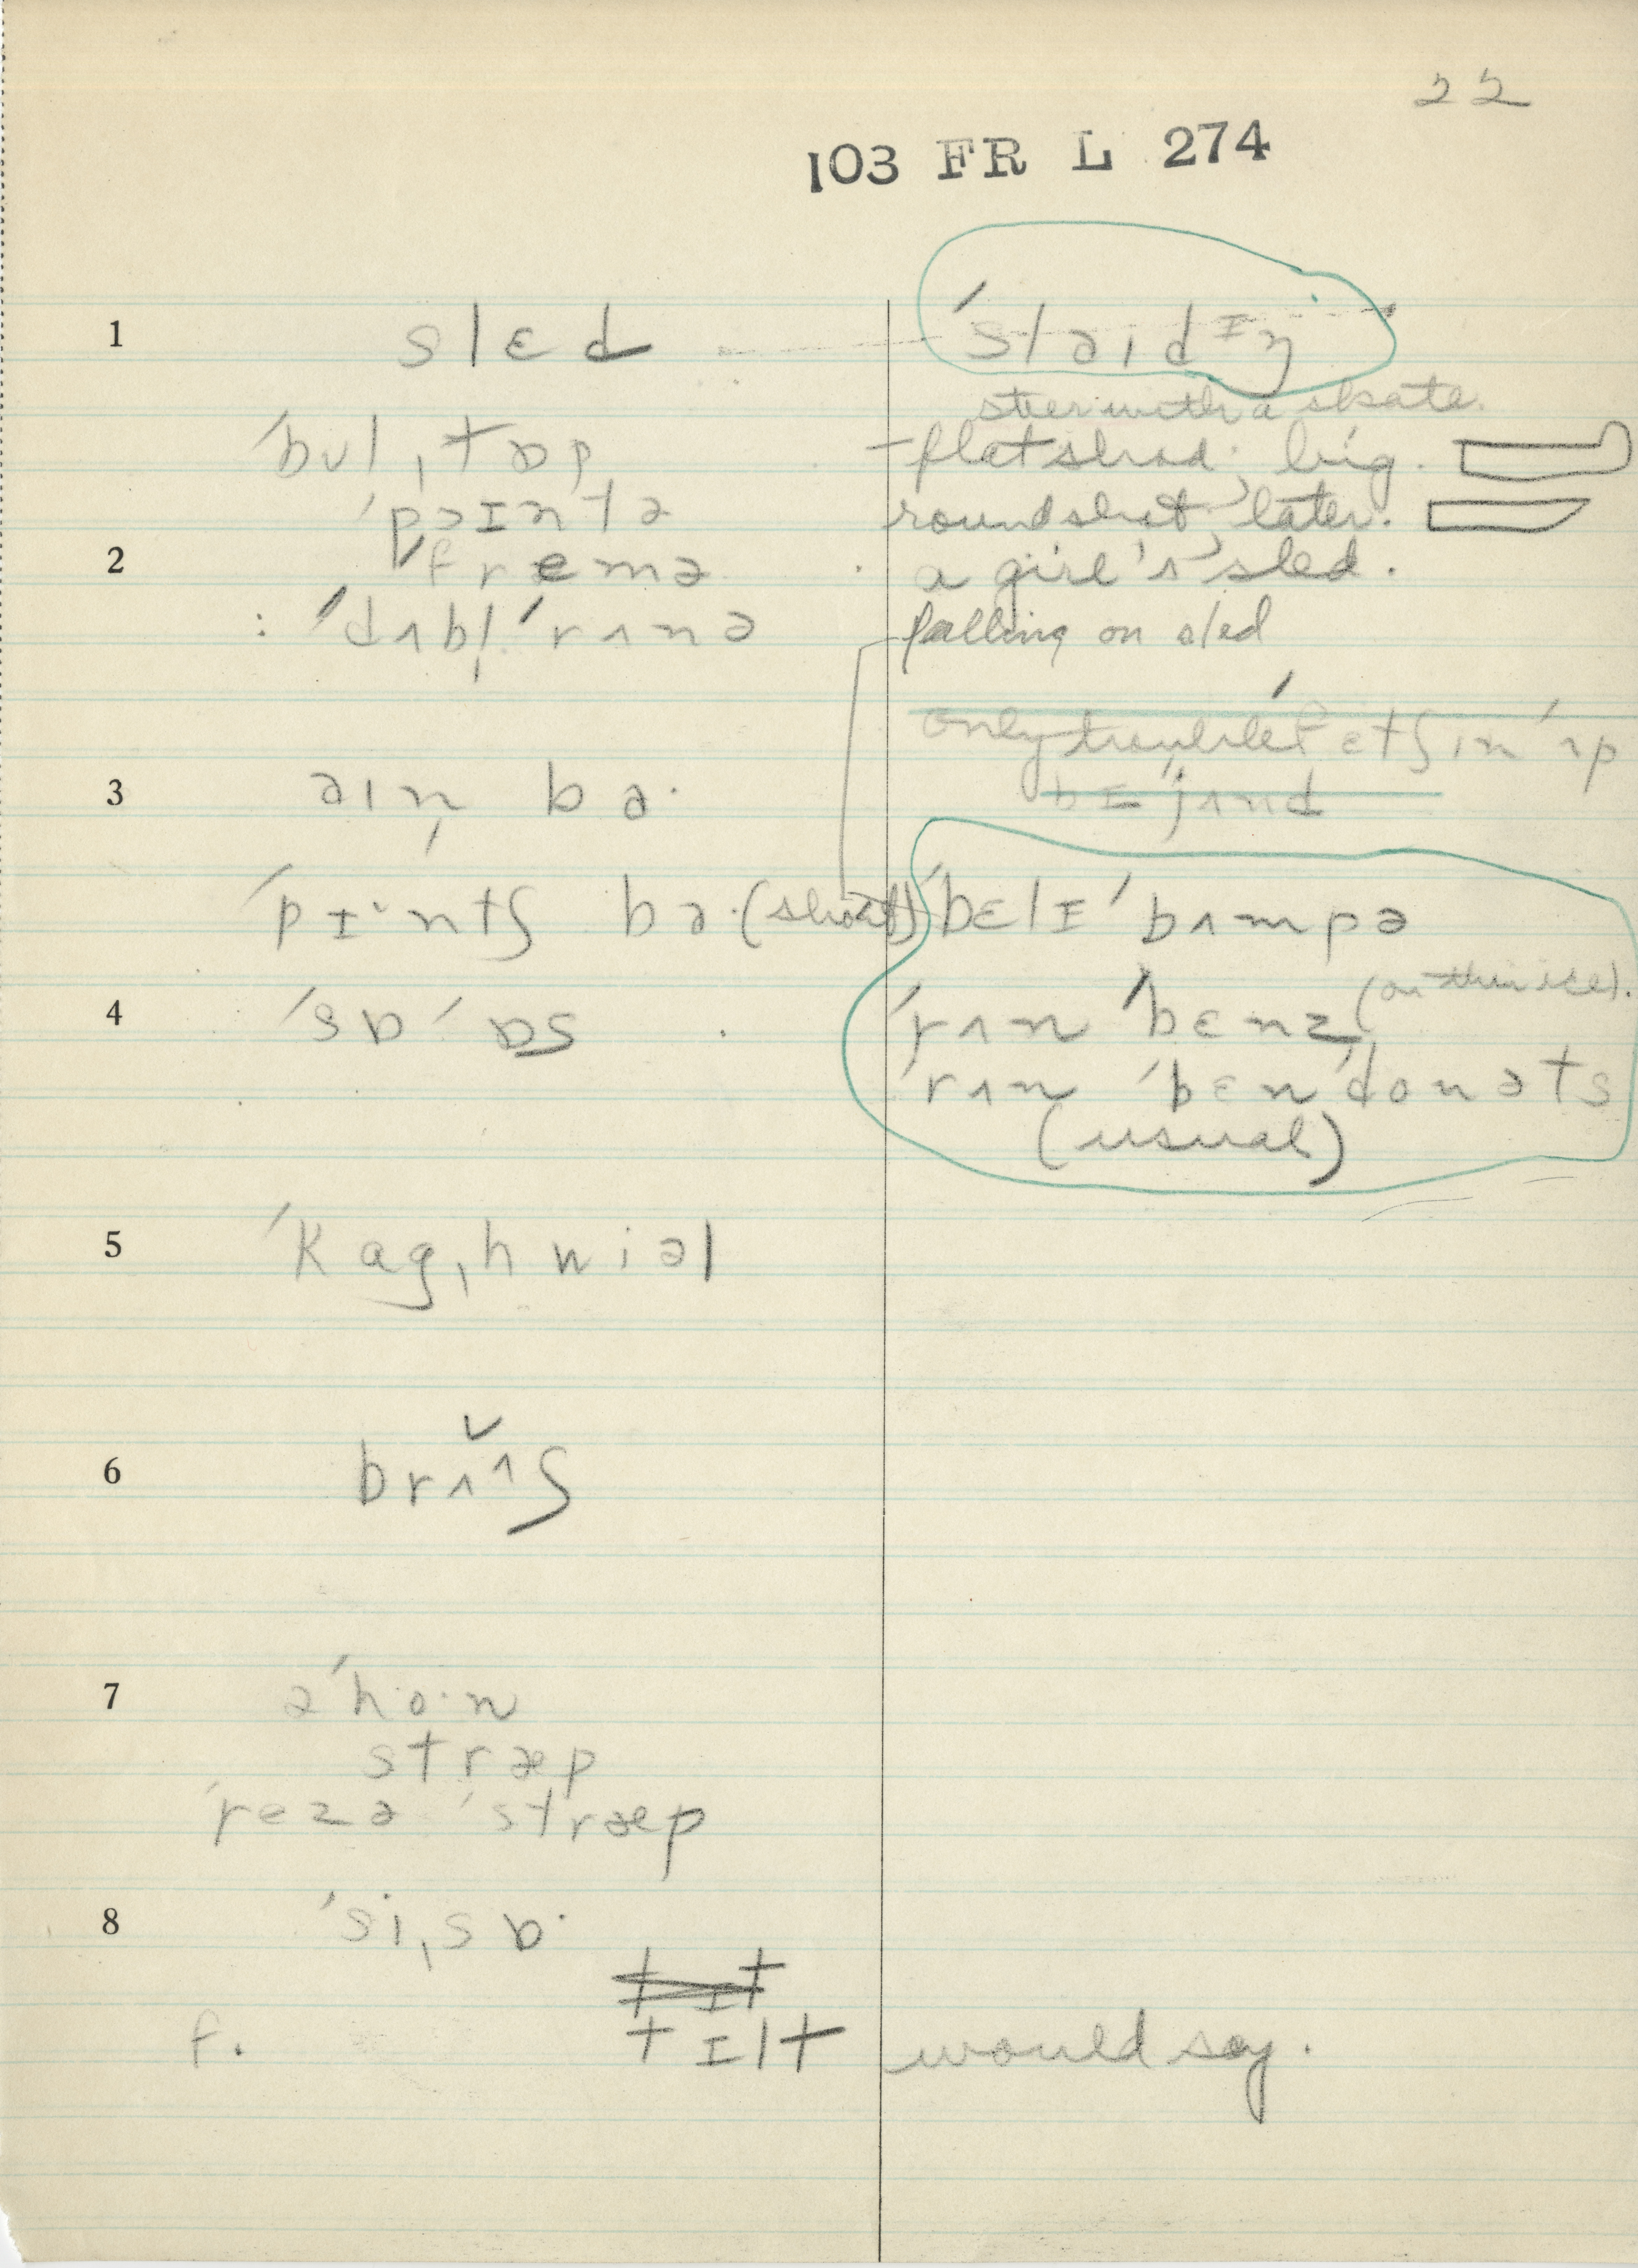 22
103 FR L 274
1 slɛd 'slaidɪŋ
steer with a skate.
'bul,tɒp flat shod, big.
'pɔɪntə round shod, later.
2 'fremə a girl's sled.
'dʌbl̩ 'rʌnə falling on sled
only trouble fɛtʃ in 'ʌp
3 aɪn̩ ba· bɪ'jʌnd
'pɪ·ntʃ ba· (short) 'bɛlɪ 'bʌmpə
4 'sɒ' ɒs 'rʌn 'bɛnz (on thin ice).
'rʌn 'bɛn'donəts
(usual)
5 'kag,hwiəl
6 brʌʌʃ
7 ə'ho·n
stræp
'rezə 'stræp
8 'si,sɒ·
f. tɪlt would say.